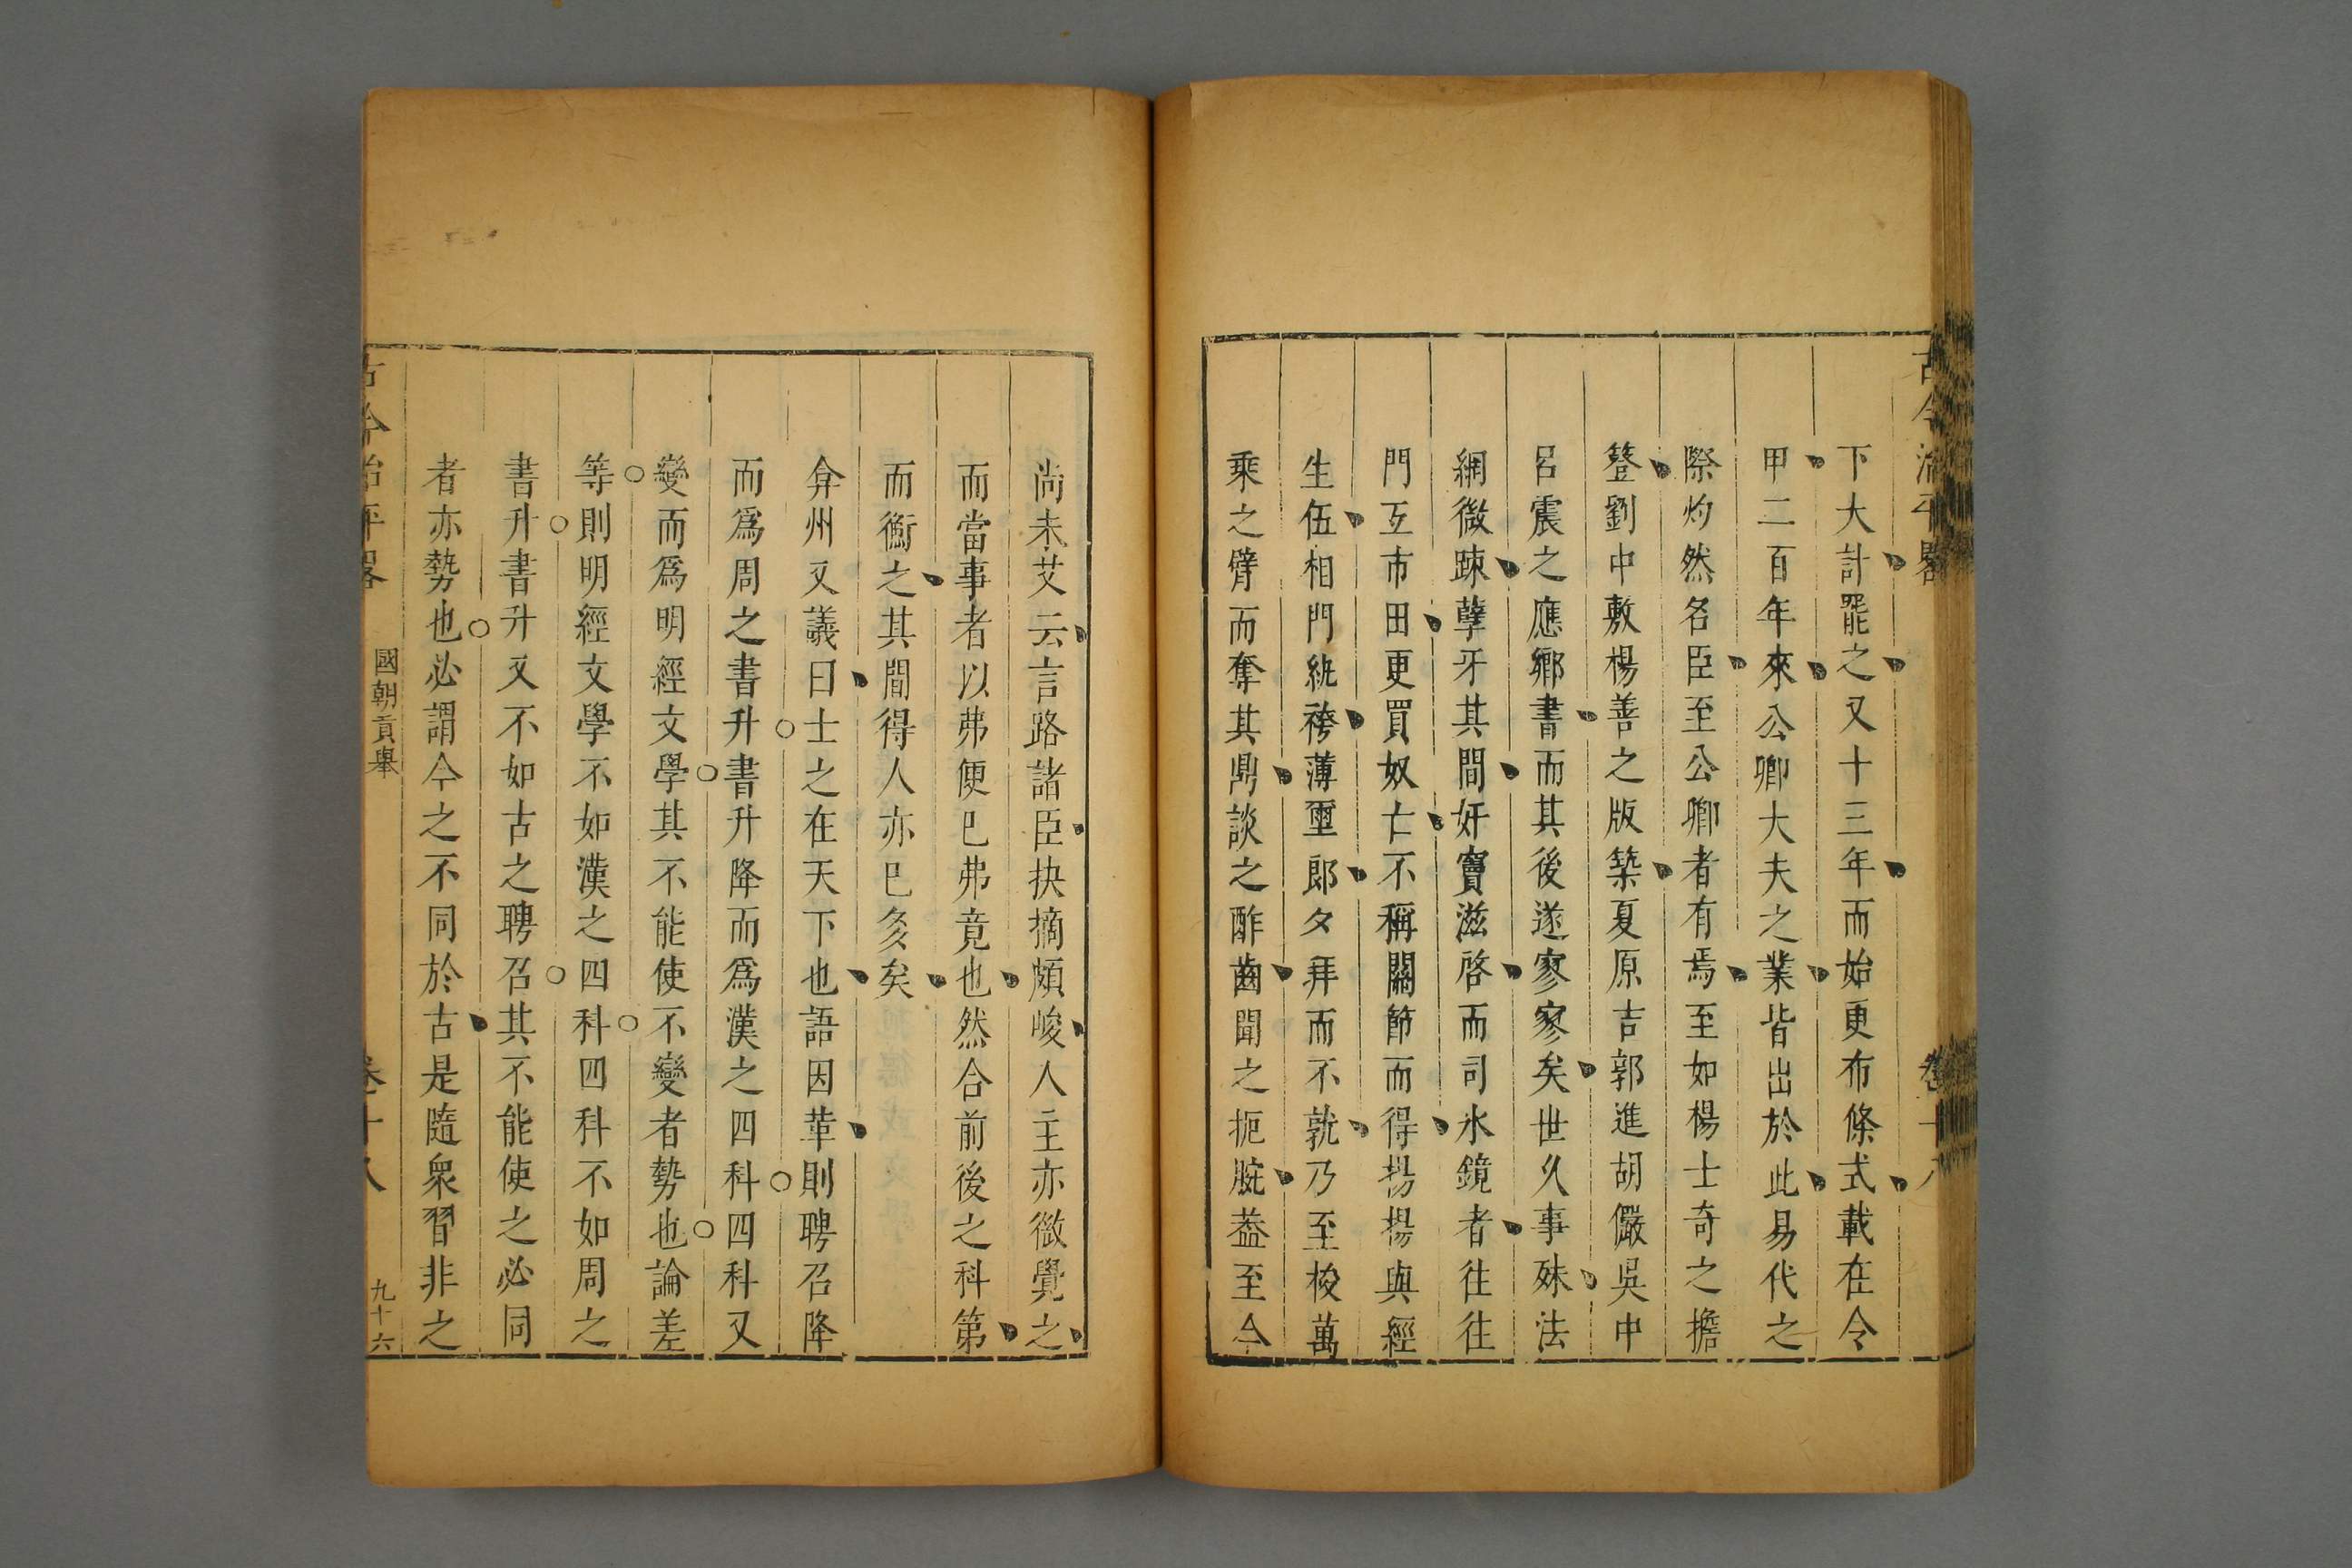 古今治平畧 卷十八
下大計罷之又十三年而始更布條式載在令
甲二百年來公卿大夫之業皆出於此易代之
際灼然名臣至公卿者有焉至如楊士奇之擔
簦劉中敷楊善之版築夏原吉郭進胡儼吳中
呂震之應鄉書而其後遂寥寥矣世久事殊法
網微踈孽牙其間奸竇滋啓而司氷鏡者往往
門互市田更買奴亡不稱關節而得揚揚與經
生伍相門紈袴薄璽郎夕拜而不就乃至梭萬
乘之臂而奪其鼎談之酢齒聞之扼腕葢至今
尚未艾云言路諸臣抉摘頗峻人主亦微覺之
而當事者以弗便已弗竟也然合前後之科第
而衡之其間得人亦已多矣
弇州又議曰士之在天下也語因革則聘召降
而爲周之書升書升降而爲漢之四科四科又
變而爲明經文學其不能使不變者勢也論差
等則明經文學不如漢之四科四科不如周之
書升書升又不如古之聘召其不能使之必同
者亦勢也必謂今之不同於古是隨衆習非之
古今治平畧 國朝貢舉 卷十八 九十六